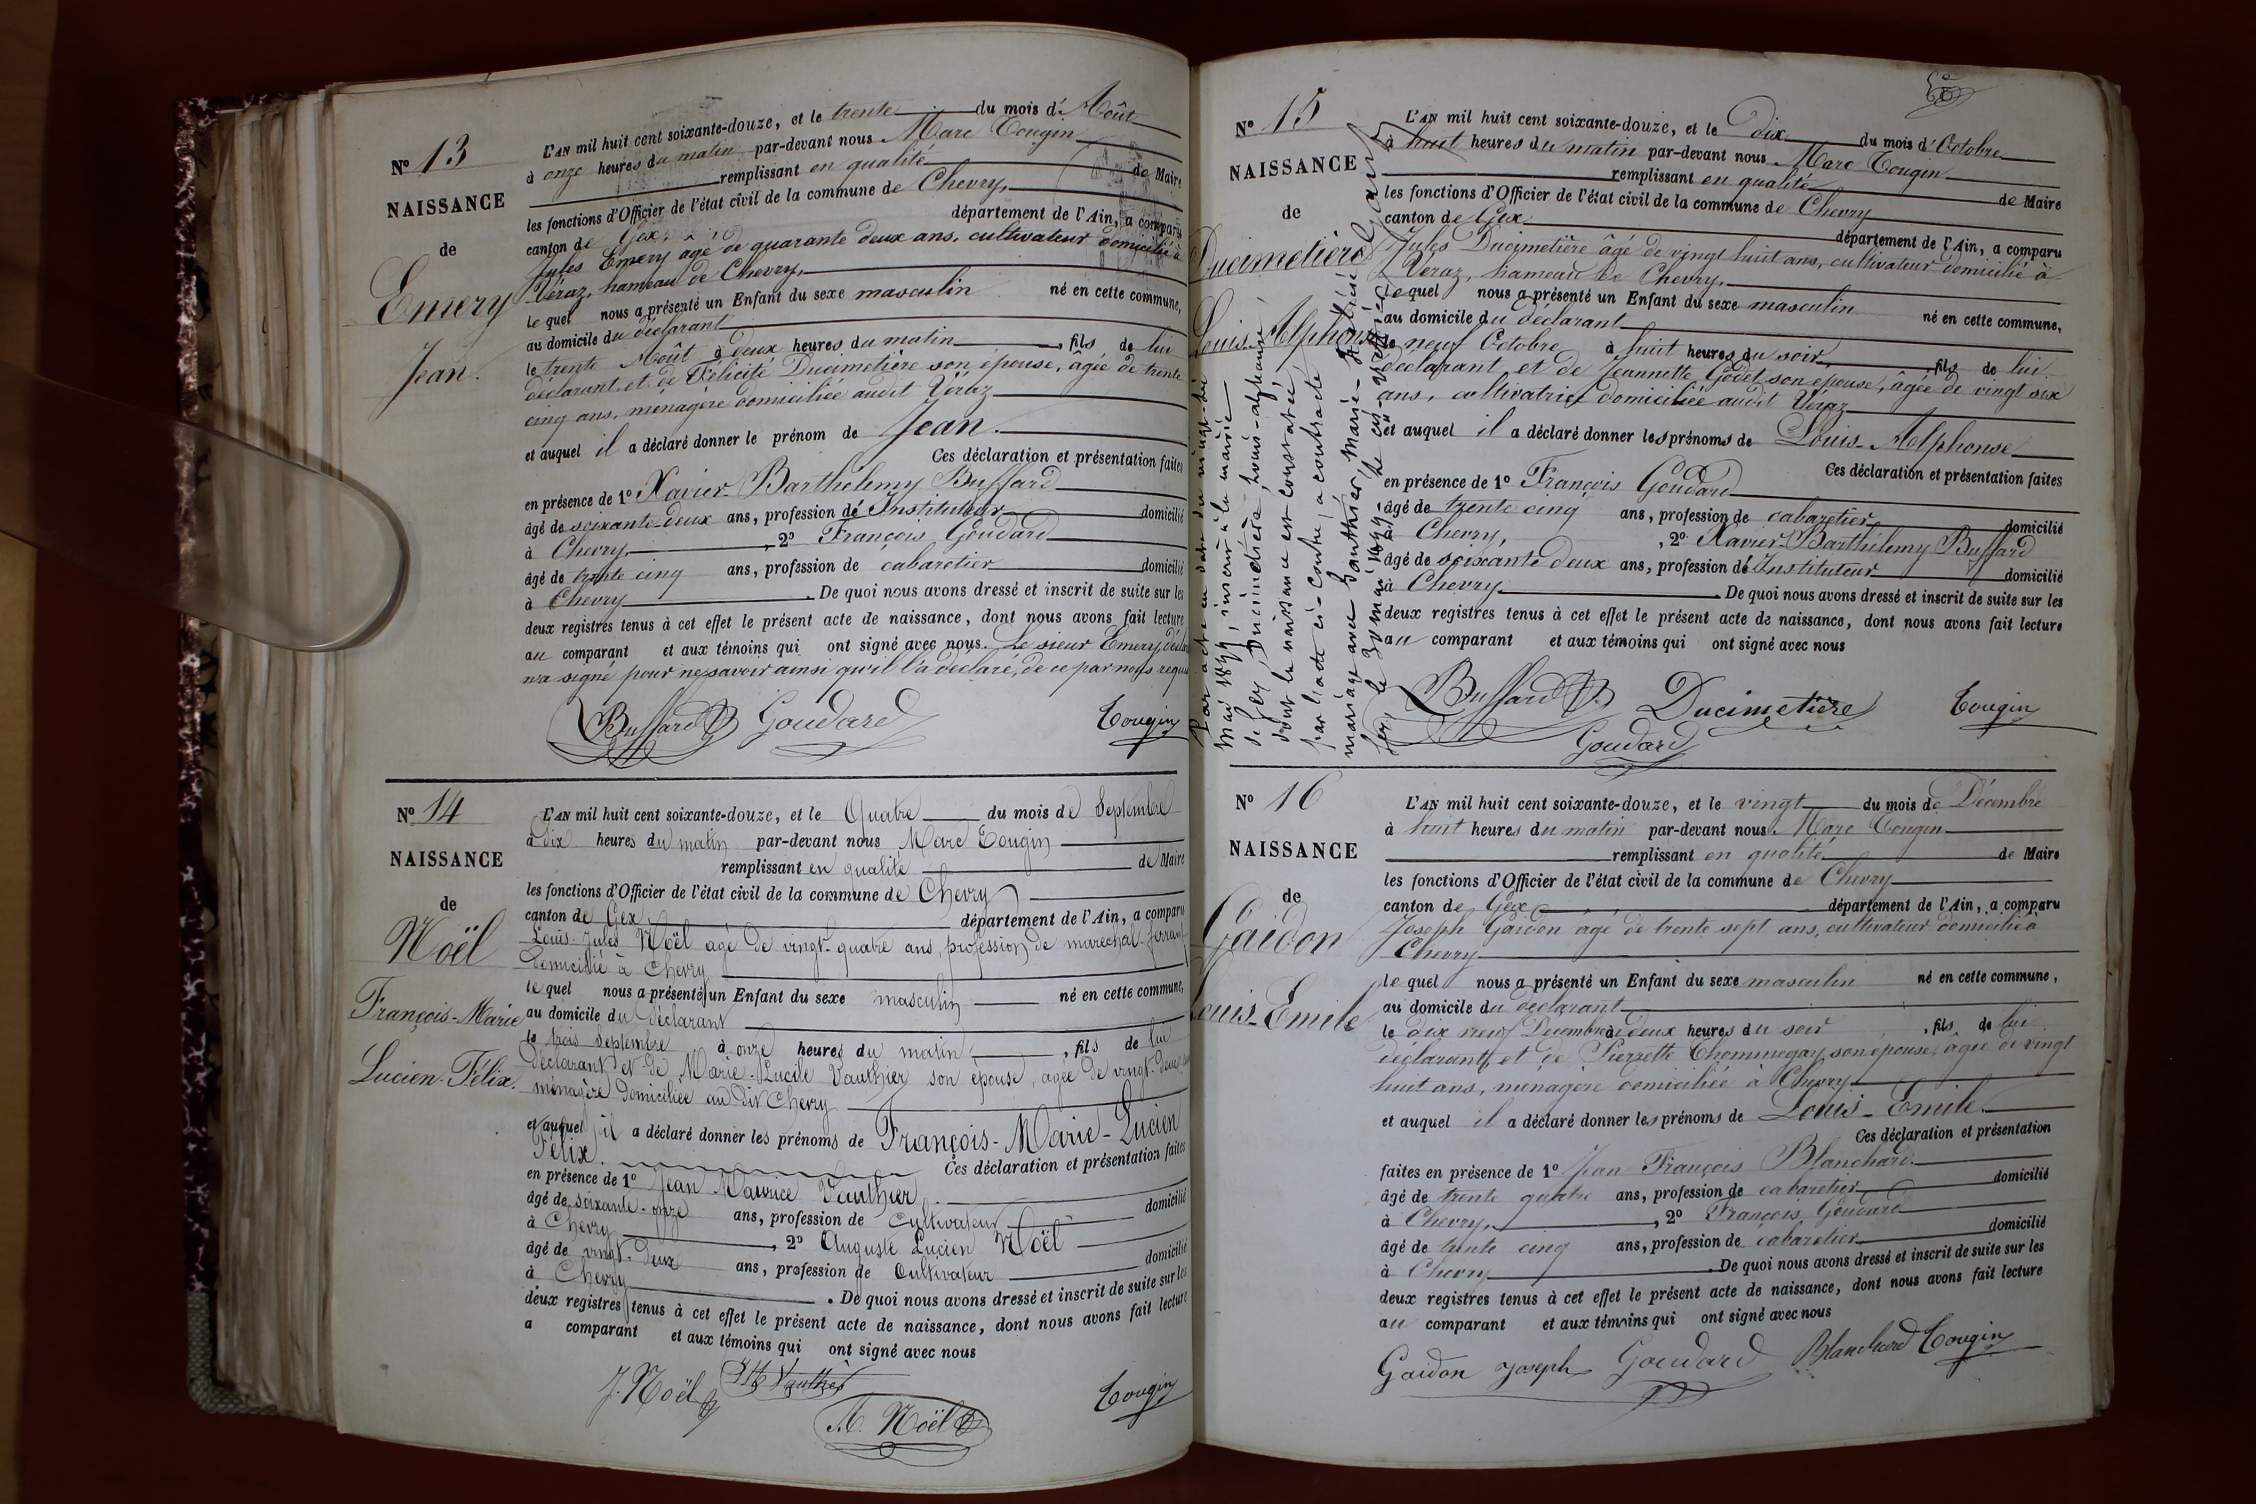 N° 13
NAISSANCE
de
Emery
Jean.
L'AN mil huit cent soixante-douze, et le trente du mois d'Août
à onze heures du matin par-devant nous Marc Tougin
remplissant en qualité de Maire
les fonctions d'Officier de l'état civil de la commune de Chevry,
canton de Gex, département de l'Ain, a comparu
Jules Emery âgé de quarante deux ans, cultivateur domicilié à
Véraz, hameau de Chevry,
le quel nous a présenté un Enfant du sexe masculin né en cette commune,
au domicile du déclarant
le trente Août à deux heures du matin, fils de lui
déclarant et de Félicité Ducimetière son épouse, âgée de trente
cinq ans, ménagère domiciliée audit Véraz
et auquel il a déclaré donner le prénom de Jean.
Ces déclaration et présentation faites
en présence de 1° Xavier-Barthélemy Buffard
âgé de soixante-deux ans, profession d'Instituteur domicilié
à Chevry, 2° François Goudard
âgé de trente cinq ans, profession de cabaretier domicilié
à Chevry. De quoi nous avons dressé et inscrit de suite sur les
deux registres tenus à cet effet le présent acte de naissance, dont nous avons fait lecture
au comparant et aux témoins qui ont signé avec nous. Le sieur Emery, décla
n'a signé pour ne savoir ainsi qu'il l'a déclaré, de ce par nous requis
Buffard B Goudard Tougin
N° 14
NAISSANCE
de
Noël
François-Marie
Lucien-Félix.
L'AN mil huit cent soixante-douze, et le Quatre du mois de Septembre
à dix heures du matin par-devant nous Marc Tougin
remplissant en qualité de Maire
les fonctions d'Officier de l'état civil de la commune de Chevry
canton de Gex département de l'Ain, a comparu
Louis-Jules Noël agé de vingt-quatre ans, profession de maréchal-ferrant
domicilié à Chevry
le quel nous a présenté un Enfant du sexe masculin né en cette commune,
au domicile du déclarant
le trois Septembre à onze heures du matin, fils de lui
déclarant et de Marie-Lucile Vauthier son épouse, agée de vingt-deux ans
ménagère domiciliée au dit Chevry
et auquel il a déclaré donner les prénoms de François-Marie-Lucien
Félix. Ces déclaration et présentation faites
en présence de 1° Jean Maurice Vauthier
âgé de soixante-onze ans, profession de Cultivateur domicilié
à Chevry, 2° Auguste Lucien Noël
âgé de vingt-deux ans, profession de Cultivateur domicilié
à Chevry. De quoi nous avons dressé et inscrit de suite sur les
deux registres tenus à cet effet le présent acte de naissance, dont nous avons fait lecture
a comparant et aux témoins qui ont signé avec nous
J. Noël Vauthier
A. Noël Tougin
N° 15
NAISSANCE
de
Ducimetière
Louis-Alphonse
Par acte en date du vingt-six
Mai 1899, inscrit à la mairie
de Gex, Ducimetière, Louis-alphonse
dont la naissance est constatée
par l'acte ci-contre, a contracté
mariage avec Gauthier Marie-
Gex, le 30 mai 1899. Le
L'AN mil huit cent soixante-douze, et le dix du mois d'Octobre
à huit heures du matin par-devant nous Marc Tougin
remplissant en qualité de Maire
les fonctions d'Officier de l'état civil de la commune de Chevry
canton de Gex département de l'Ain, a comparu
Jules Ducimetière âgé de vingt huit ans, cultivateur domicilié à
Véraz, hameau de Chevry,
le quel nous a présenté un Enfant du sexe masculin né en cette commune,
au domicile du déclarant
le neuf Octobre à huit heures du soir, fils de lui
déclarant et de Jeannette Godet son épouse, âgée de vingt six
ans, cultivatrice domiciliée audit Véraz
et auquel il a déclaré donner les prénoms de Louis-Alphonse
Ces déclaration et présentation faites
en présence de 1° François Goudard
âgé de trente cinq ans, profession de cabaretier domicilié
à Chevry, 2° Xavier-Barthélemy Buffard
âgé de soixante deux ans, profession d'Instituteur domicilié
à Chevry. De quoi nous avons dressé et inscrit de suite sur les
deux registres tenus à cet effet le présent acte de naissance, dont nous avons fait lecture
au comparant et aux témoins qui ont signé avec nous
Buffard B. Ducimetière Tougin
Goudard
N° 16
NAISSANCE
de
Gaidon
Louis-Emile
L'AN mil huit cent soixante-douze, et le vingt du mois de Décembre
à huit heures du matin par-devant nous Marc Tougin
remplissant en qualité de Maire
les fonctions d'Officier de l'état civil de la commune de Chevry
canton de Gex département de l'Ain, a comparu
Joseph Gaidon âgé de trente sept ans, cultivateur domicilié à
Chevry
le quel nous a présenté un Enfant du sexe masculin né en cette commune,
au domicile du déclarant
le dix neuf Décembre à deux heures du soir, fils de lui
déclarant, et de Pierrette Thomnegay, son épouse, âgée de vingt
huit ans, ménagère domiciliée à Chevry
et auquel il a déclaré donner les prénoms de Louis-Emile
Ces déclaration et présentation
faites en présence de 1° Jean François Blanchard
âgé de trente quatre ans, profession de cabaretier domicilié
à Chevry, 2° François Goudard
âgé de trente cinq ans, profession de cabaretier domicilié
à Chevry. De quoi nous avons dressé et inscrit de suite sur les
deux registres tenus à cet effet le présent acte de naissance, dont nous avons fait lecture
au comparant et aux témoins qui ont signé avec nous
Gaidon Joseph Goudard Blanchard Tougin